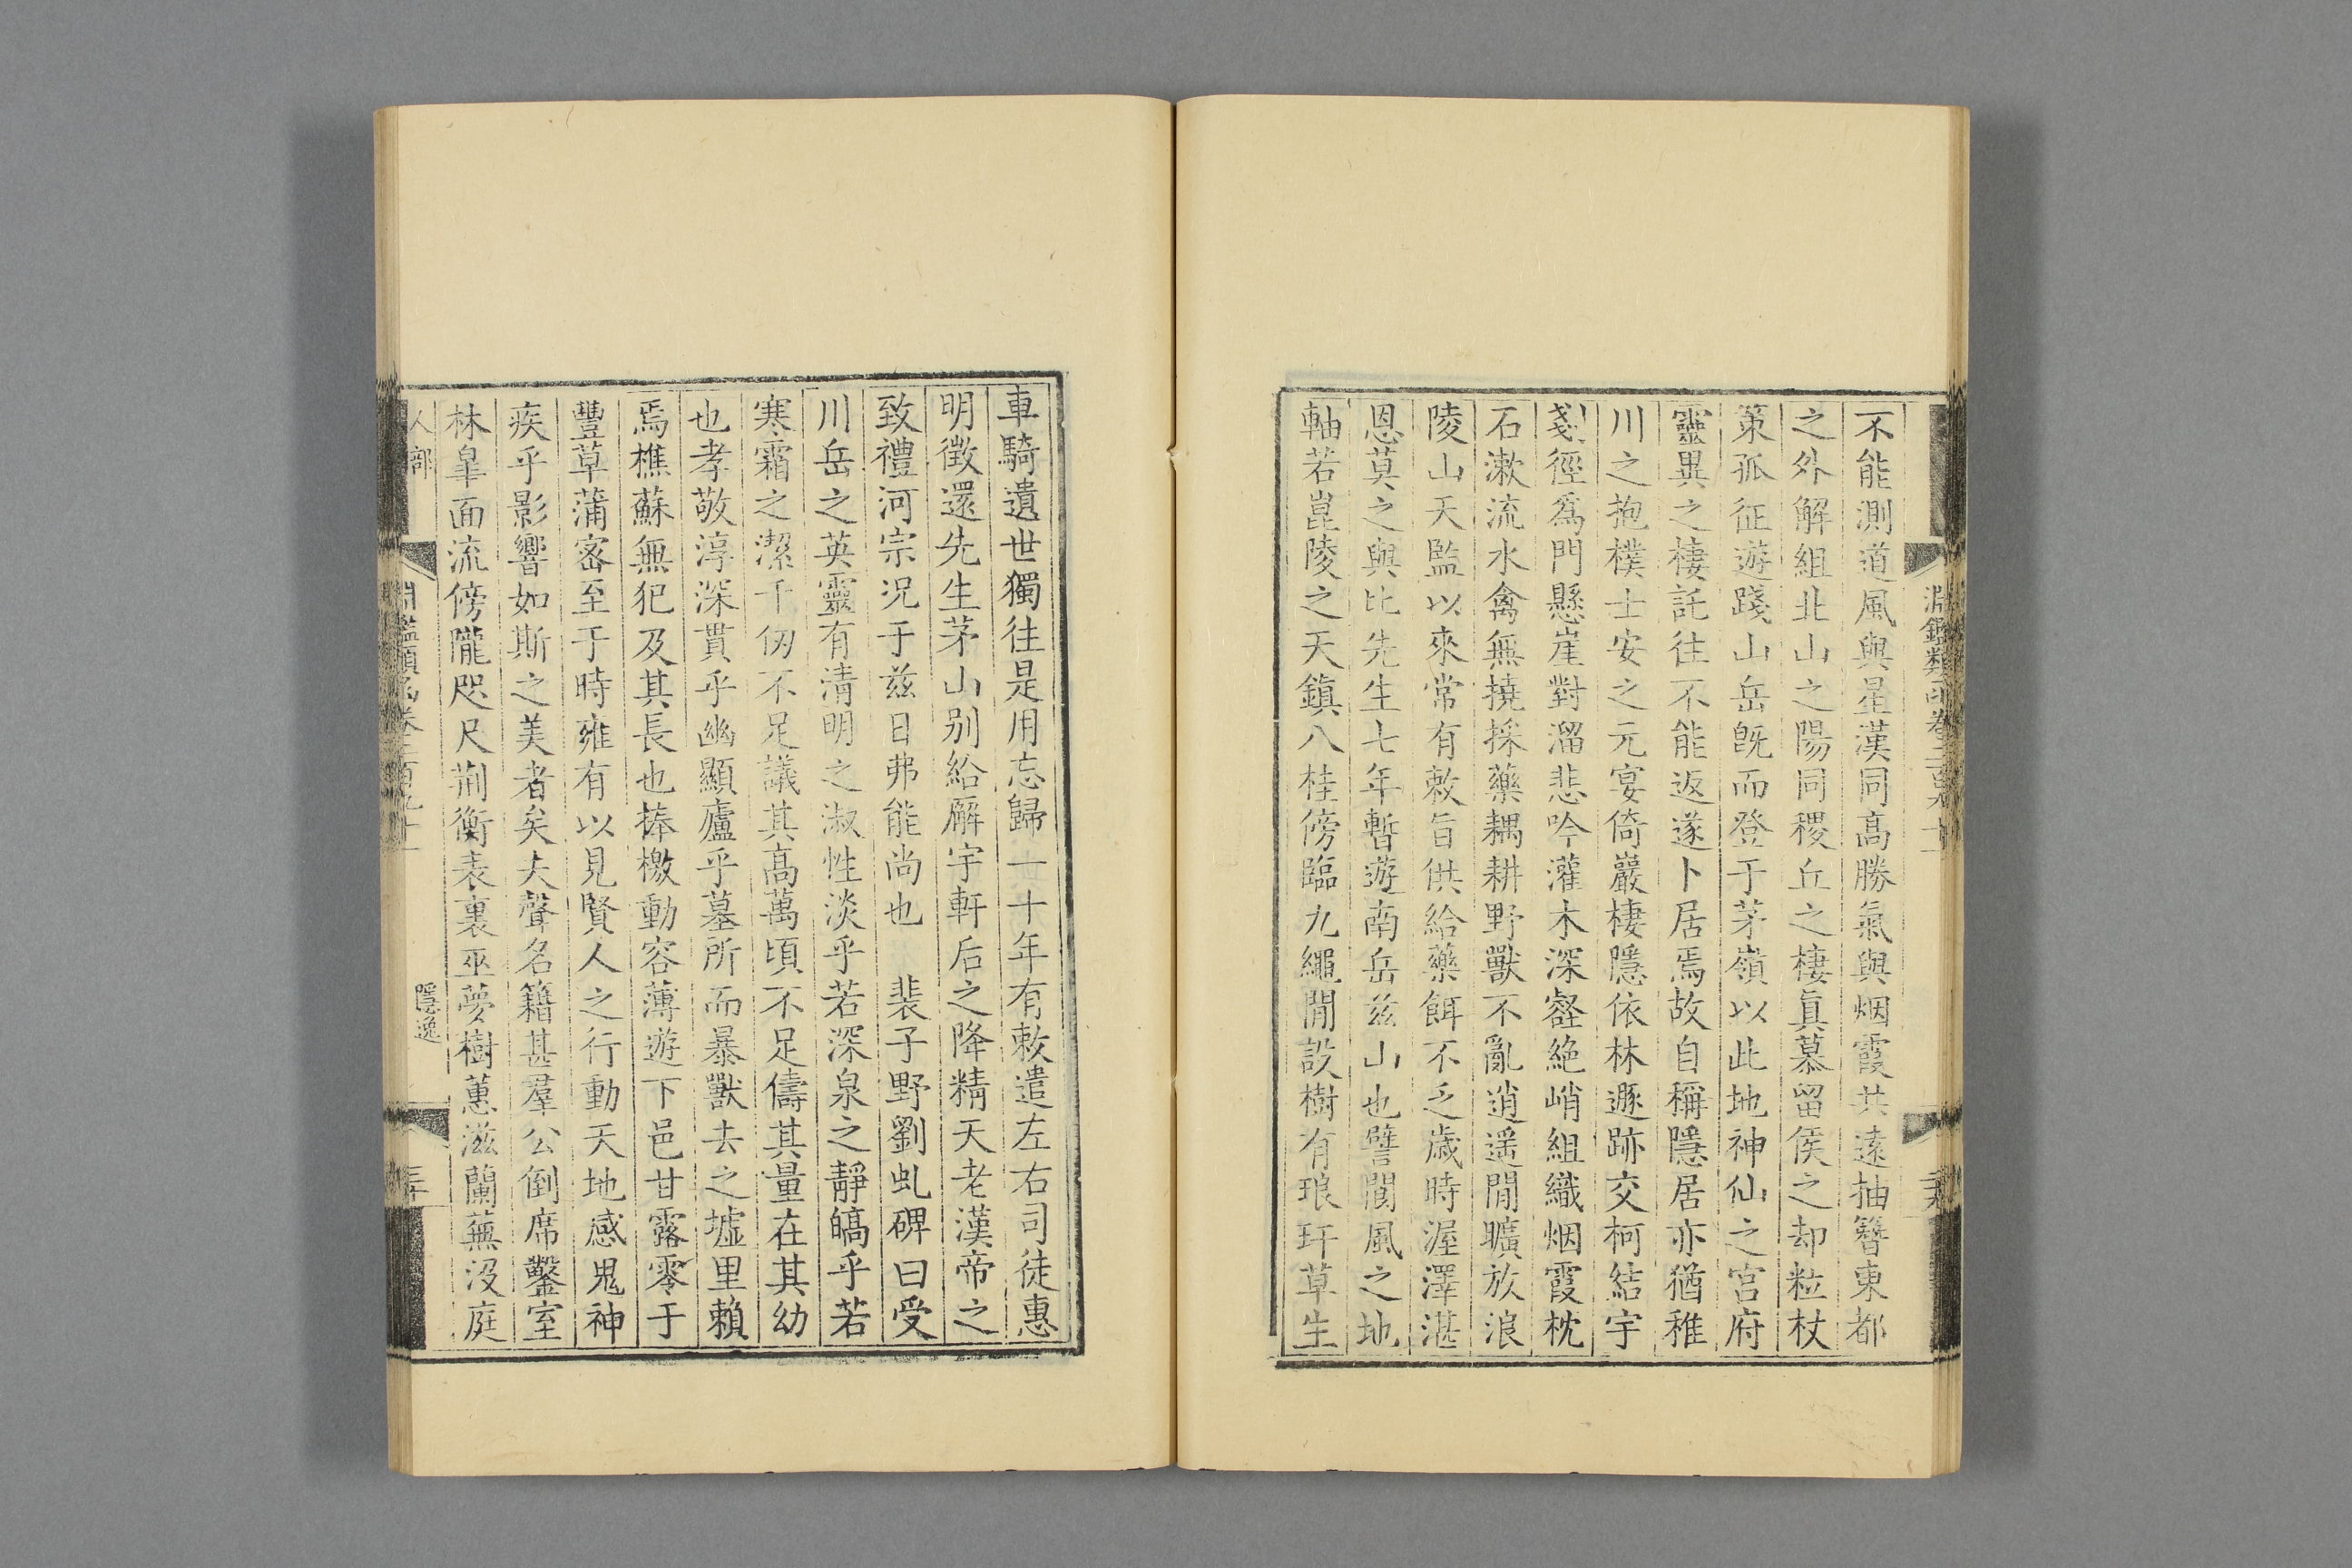 不能測道風與星漢同高勝氣與烟霞共遠抽簪東都
之外解組北山之陽同稷丘之棲眞慕留侯之却粒杖
策孤征遊踐山岳旣而登于茅嶺以此地神仙之宫府
靈異之棲託往不能返遂卜居焉故自稱隱居亦猶稚
川之抱樸士安之元宴倚巖棲隱依林遯跡交柯結宇
剗徑爲門懸崖對溜悲吟灌木深壑絶峭組織烟霞枕
石漱流水禽無撓採藥耦耕野獸不亂逍遥閒曠放浪
陵山天監以來常有敕旨供給藥餌不乏歲時渥澤湛
恩莫之與比先生七年暫遊南岳兹山也譬閬風之地
軸若崑陵之天鎮八桂傍臨九繩閒設樹有琅玕草生
車騎遺世獨往是用忘歸一十年有敕遣左右司徒惠
明徵還先生茅山别給廨宇軒后之降精天老漢帝之
致禮河宗况于兹日弗能尚也　裴子野劉虬碑曰受
川岳之英靈有清明之淑性淡乎若深泉之靜皜乎若
寒霜之潔千仞不足議其高萬頃不足儔其量在其幼
也孝敬淳深貫乎幽顯廬乎墓所而暴獸去之墟里賴
焉樵蘇無犯及其長也捧檄動容薄遊下邑甘露零于
豐草蒲密至于時雍有以見賢人之行動天地感鬼神
疾乎影響如斯之美者矣夫聲名籍甚羣公倒席鑿室
林皐面流傍隴咫尺荆衡表裏巫夢樹蕙滋蘭蕪没庭
人部
淵鑑類函卷二百九十一
隱逸
三十